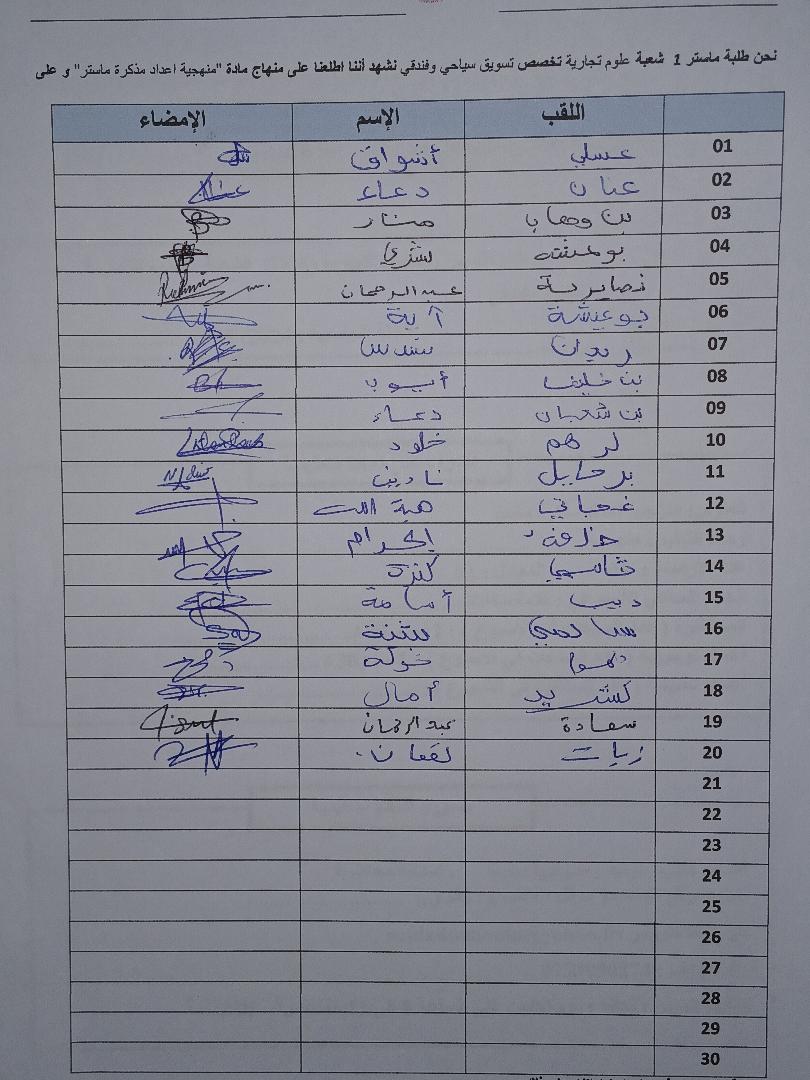 نحن طلبة ماستر 1 شعبة علوم تجارية تخصص تسويق سياحي وفندقي نشهد أننا اطلعنا على منهاج مادة "منهجية اعداد مذكرة ماستر" و على
اللقب الإسم الإمضاء
01 عسلي أشواق
02 عنان دعاء
03 بن وهاب منار
04 بوعيشة بشرى
05 نصايرية عبد الرحمان
06 بوعيشة آية
07 زيدان سندس
08 بن خليف أيوب
09 بن شعبان دعاء
10 لرهم خلود
11 برحايل نادين
12 هبة الله
13 إكرام
14 قاسمي كنزة
15 ديب أسامة
16 سالمي بثينة
17 خولة
18 أمال
19 سعادة عبد الرحمان
20 زيات لقمان
21
22
23
24
25
26
27
28
29
30